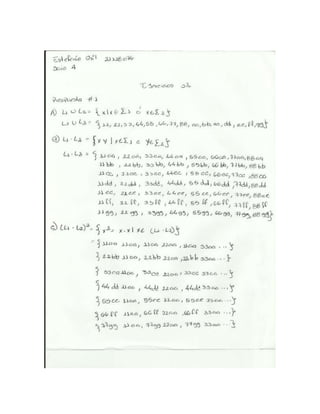 Estefania Gil
Saia A
Ejercicios
Respuesta #1
A) L1 ∪ L2 = { x | x ∈ Σ1 ó x ∈ Σ2 }
L1 ∪ L2 = { 11, 22, 33, 44, 55, 66, 77, 88, aa, bb, cc, dd, ee, ff, gg }
L1 · L2 = { xy | x ∈ Σ1 e y ∈ Σ2 }
L1 · L2 = { 11aa, 22aa, 33aa, 44aa, 55aa, 66aa, 77aa, 88aa
11bb, 22bb, 33bb, 44bb, 55bb, 66bb, 77bb, 88bb
11cc, 22cc, 33cc, 44cc, 55cc, 66cc, 77cc, 88cc
11dd, 22dd, 33dd, 44dd, 55dd, 66dd, 77dd, 88dd
11ee, 22ee, 33ee, 44ee, 55ee, 66ee, 77ee, 88ee
11ff, 22ff, 33ff, 44ff, 55ff, 66ff, 77ff, 88ff
11gg, 22gg, 33gg, 44gg, 55gg, 66gg, 77gg, 88gg }
c) (L1 · L2)² = { x² = x · x | x ∈ (L1 · L2) }
= { 11aa 11aa, 11aa 22aa, 11aa 33aa ... }
{ 22bb 11aa, 22bb 22aa, 22bb 33aa ... }
{ 44dd 11aa, 44dd 22aa, 44dd 33aa ... }
{ 55ee 11aa, 55ee 22aa, 55ee 33aa ... }
{ 66ff 11aa, 66ff 22aa, 66ff 33aa ... }
{ 77gg 11aa, 77gg 22aa, 77gg 33aa ... }